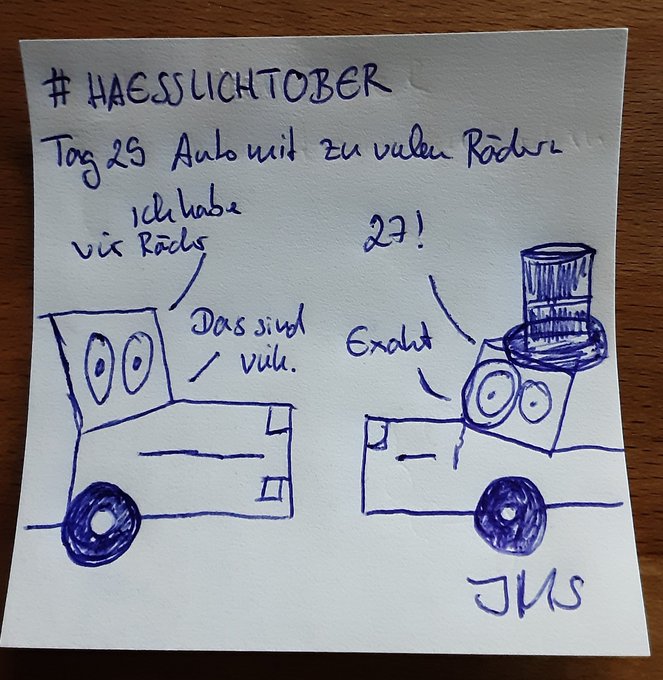 # HAESSLICHTOBER
Tag 25 Auto mit zu vielen Rädern
ich habe
vier Räder
Das sind
viele.
27!
Exakt
JMS